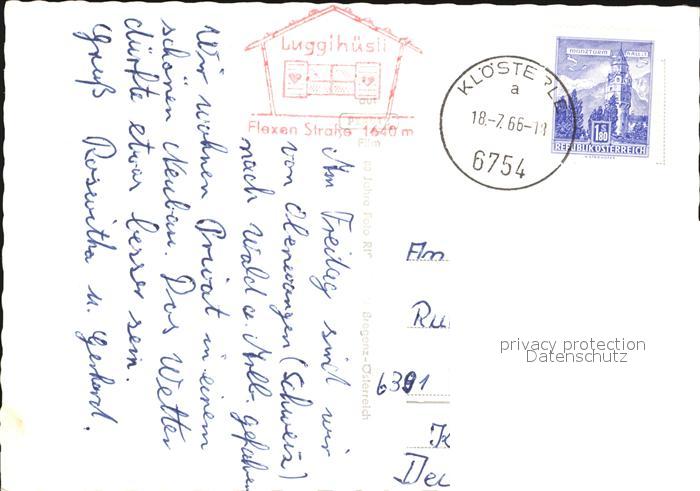 Luggihüsli
auf
Flexen Straße 1640 m
Film
KLÖSTERLE
a
18.-7.66-18
6754
MÜNZTURM HALL i.T.
S 1.80
REPUBLIK ÖSTERREICH
Am Freitag sind wir
von Oberwangen (Schweiz)
nach Wald a. Arlb. gefahren
Wir wohnen Privat in einem
schönen Neubau. Das Wetter
dürfte etwas besser sein.
Gruß Roswitha u. Gerhard.
Bregenz-Österreich
An
6391
privacy protection
Datenschutz